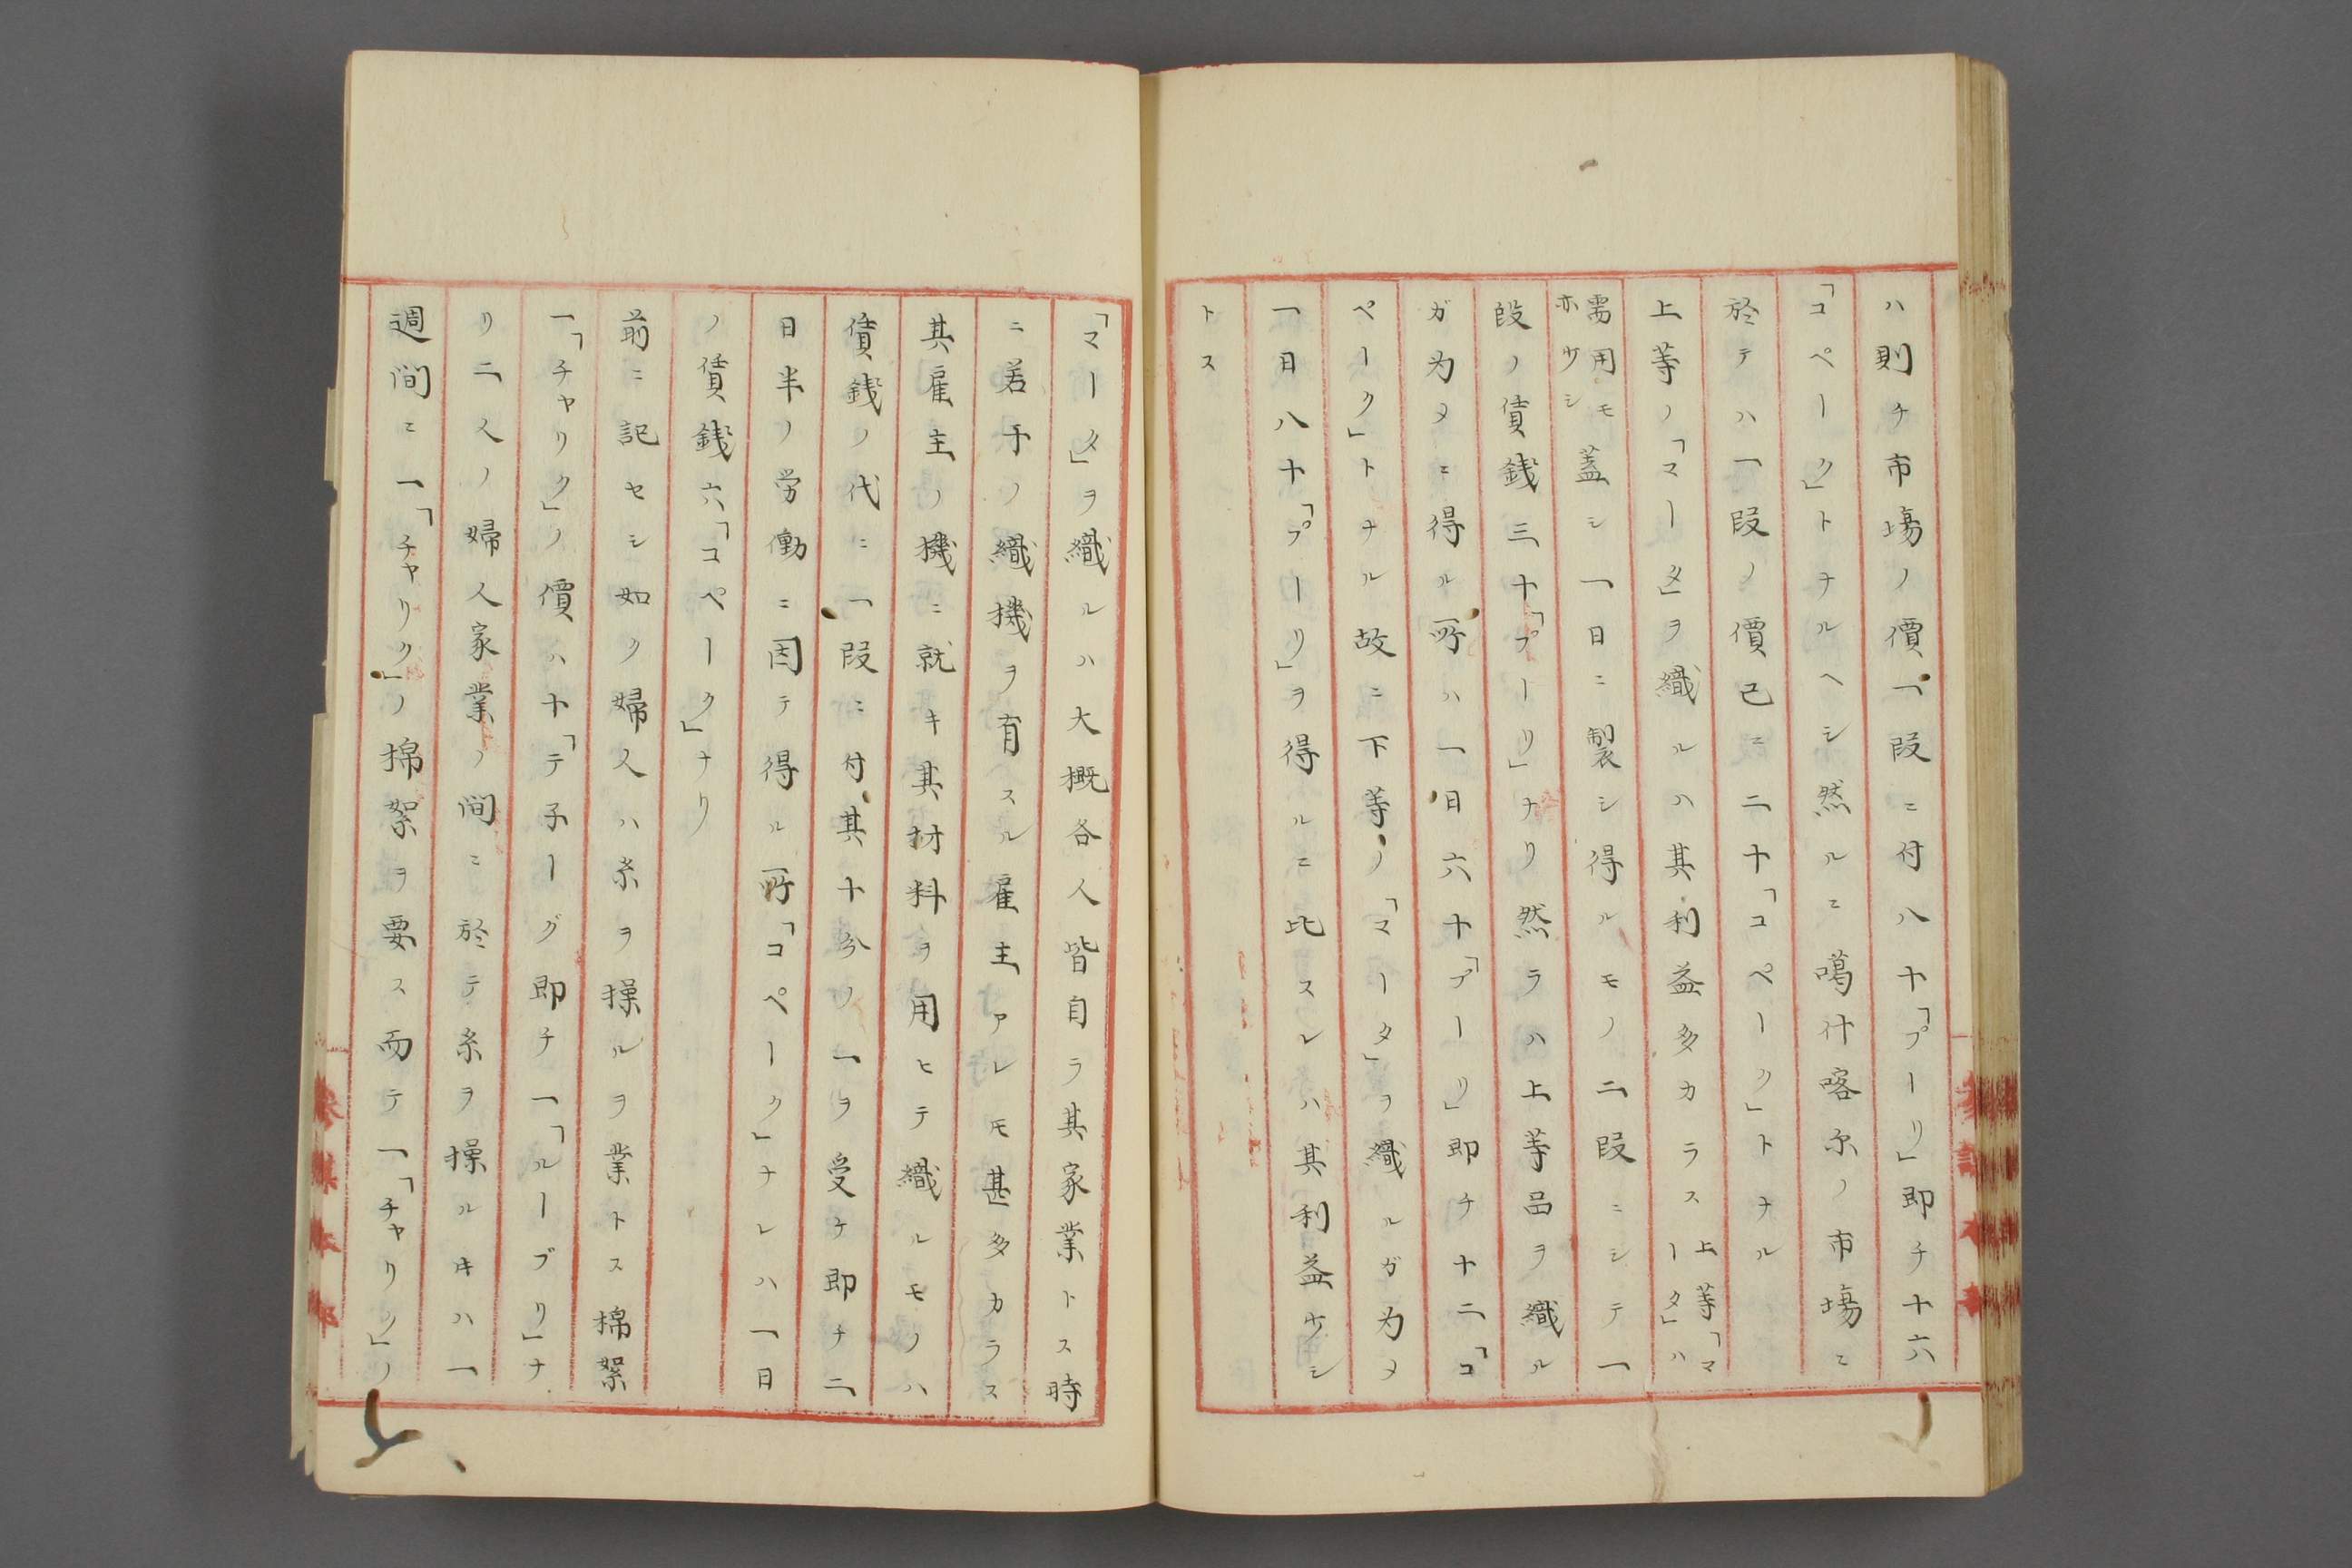 ハ則チ市場ノ價一段ニ付八十「プーリ」即チ十六
「コペーク」トナルヘシ然ルニ噶什喀尓ノ市場ニ
於テハ一段ノ價已ニ二十「コペーク」トナル
上等ノ「マータ」ヲ織ルハ其利益多カラス上等「マータ」ハ
需用モ亦少シ蓋シ一日ニ製シ得ルモノ二段ニシテ一
段ノ賃銭三十「プーリ」ナリ然ラハ上等品ヲ織ル
ガ為メニ得ル所ハ一日六十「プーリ」即チ十二「コ
ペーク」トナル故ニ下等ノ「マータ」ヲ織ルガ為メ
一日八十「プーリ」ヲ得ルニ比スレハ其利益少シ
トス
「マータ」ヲ織ルハ大概各人皆自ラ其家業トス時
ニ若干ノ織機ヲ有スル雇主アレモ甚タ多カラス
其雇主ノ機ニ就キ其材料ヲ用ヒテ織ルモノハ
賃銭ノ代ニ一段ニ付其十分ノ一ヲ受ケ即チ二
日半ノ労働ニ因テ得ル所「コペーク」ナレハ一日
ノ賃銭六「コペーク」ナリ
前ニ記セシ如ク婦人ハ糸ヲ操ルヲ業トス棉絮
一「チャリク」ノ價ハ十「テ子ーグ即チ一「ルーブリ」ナ
リ二人ノ婦人家業ノ間ニ於テ糸ヲ操ルキハ一
週間ニ一「チャリク」ノ棉絮ヲ要ス而テ一「チャリク」ノ
參謀本部